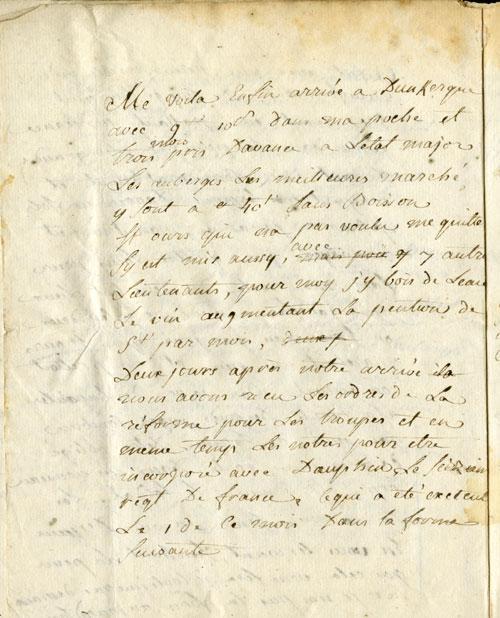 Me voila Enfin arrivée a Dunkerque
avec 9 10d Dans ma poche et
mois
trois pris Davance a Letat major
Les auberges Les meilleures marché
y sont à 40# Sans Boisson
St ours qui na pas voulu me quitte
Sy est mis aussy, avec 7 autre
Lieutenants, pour moy j'y bois de Leau
Le vin augmentant La pention de
5# par mois,
Deux jours après notre arrivée
nous avons reçu Les ordres de La
réforme pour Les troupes et en
meme temps Les notres pour etre
incorporé avec Dauphin Le
regt De france, ce qui a été executé
Le 1 de Ce mois Dans la forme
Suivante